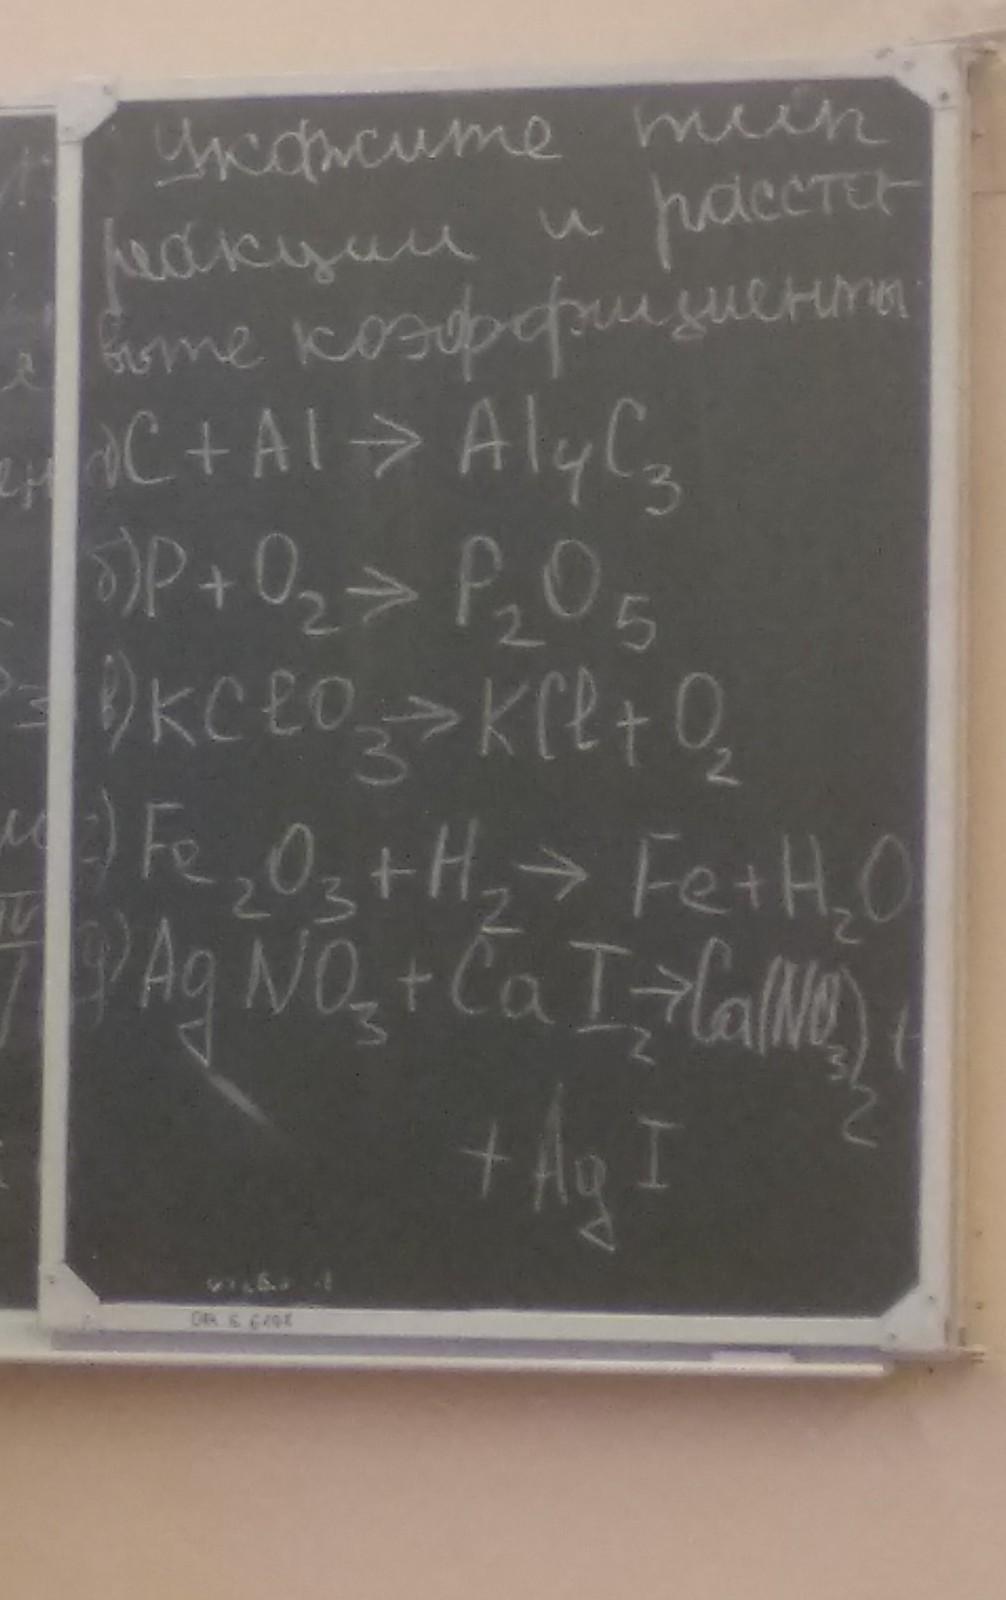 Укажите тип
реакции и расста-
вьте коэффициенты
а) C + Al → Al₄C₃
б) P + O₂ → P₂O₅
в) KClO₃ → KCl + O₂
г) Fe₂O₃ + H₂ → Fe + H₂O
д) AgNO₃ + CaI₂ → Ca(NO₃)₂ +
+ AgI